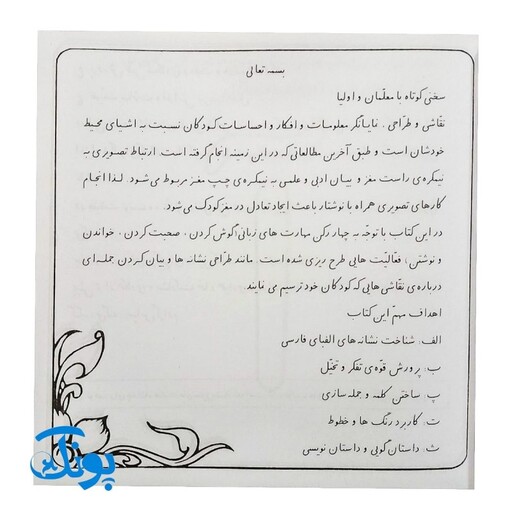 بسمه تعالی
سخنی کوتاه با معلّمان و اولیا
نقّاشی و طرّاحی، نمایانگر معلومات و افکار و احساسات کودکان نسبت به اشیای محیط
خودشان است و طبق آخرین مطالعاتی که در این زمینه انجام گرفته است. ارتباط تصویری به
نیمکره‌ی راست مغز و بیان ادبی و علمی به نیمکره‌ی چپ مغز مربوط می‌شود. لذا انجام
کارهای تصویری همراه با نوشتار باعث ایجاد تعادل در مغز کودک می‌شود.
در این کتاب با توجّه به چهار رکن مهارت های زبانی (گوش کردن، صحبت کردن، خواندن
و نوشتن) فعّالیّت هایی طرح ریزی شده است. مانند طرّاحی نشانه ها و بیان کردن جمله ای
درباره‌ی نقّاشی هایی که کودکان خود ترسیم می نمایند
اهداف مهمّ این کتاب
الف: شناخت نشانه های الفبای فارسی
ب: پرورش قوّه‌ی تفکّر و تخیّل
پ: ساختن کلمه و جمله سازی
ت: کاربرد رنگ ها و خطوط
ث: داستان گویی و داستان نویسی
پونک